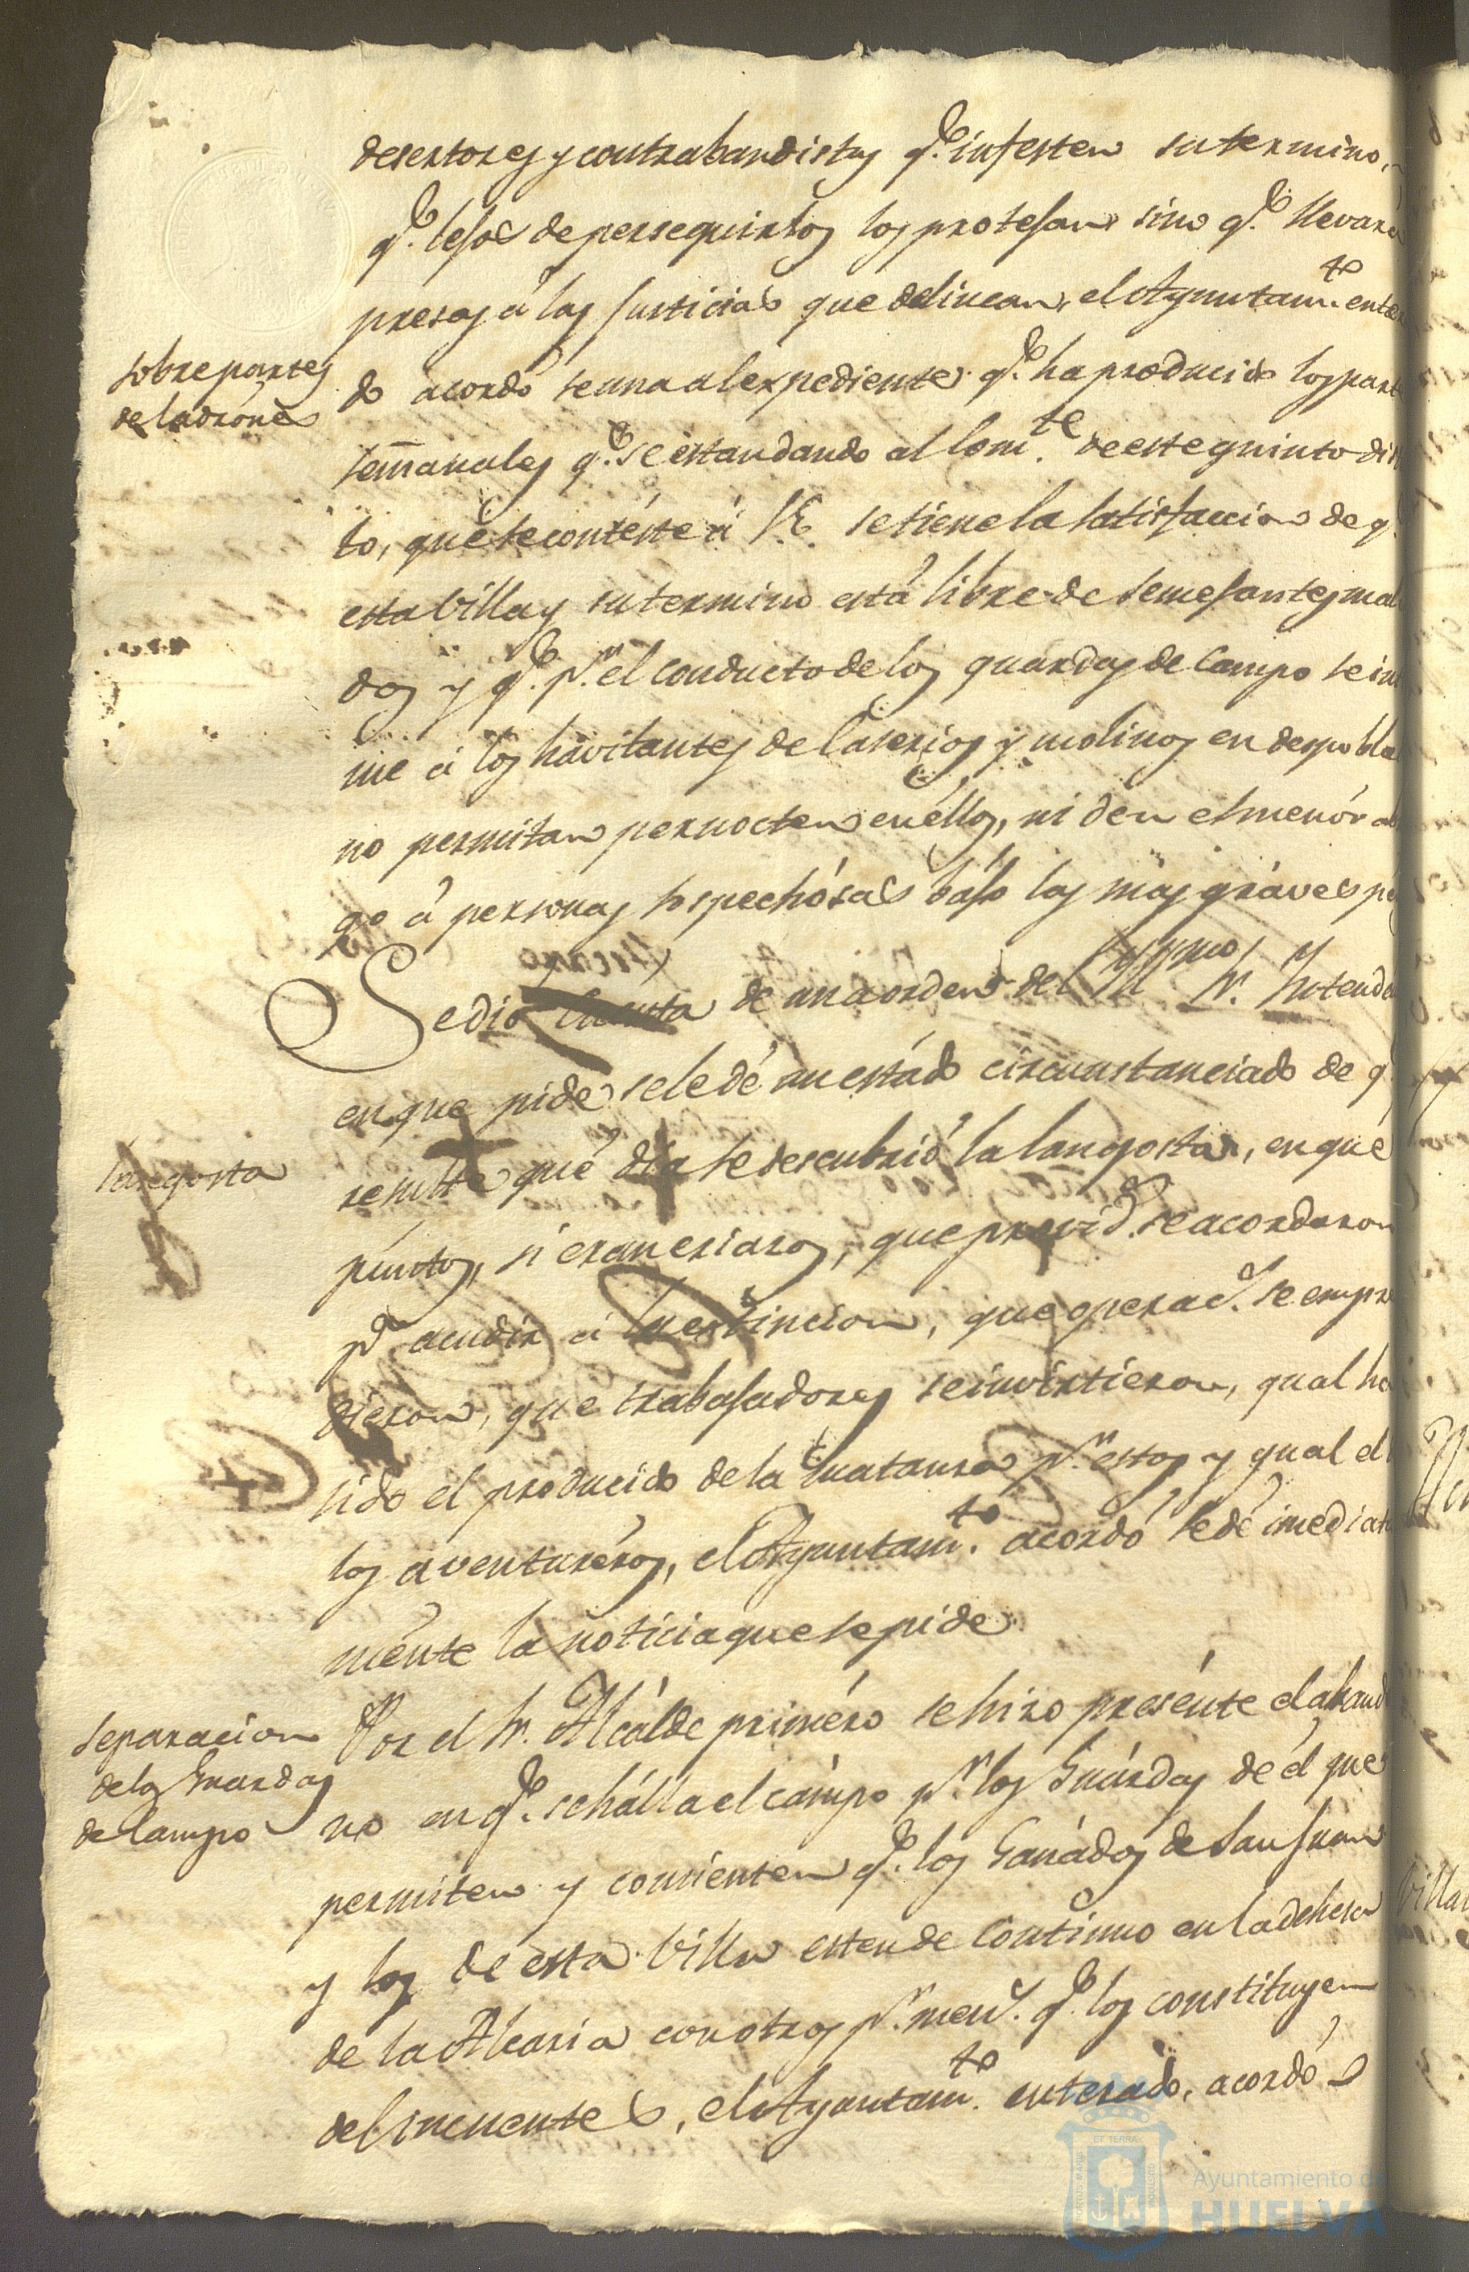 desertores y contrabandistas q.e infesten su termino,
q.e lejos de perseguirlos los protejan sino q.e llevara
presos a las Justicias que delincan, el Ayuntam.to entera
do acordó se una al expediente q.e ha producido los part
sobre partes
de ladrones
semanales q.e se estan dando al Com.te de este quinto dis
to, que se contéste á S.E. se tiene la satisfaccion de q.
esta Villa y su termino está libre de semejantes mal
dos y q.e p.r el conducto de los guardas de Campo se in
me á los havitantes de Caserios y molinos en despobla
no permitan pernocten en éllos, ni den el menór ab
go á personas sospechósas bájo las mas gráves p
Se dió Cuenta de una orden del Yll.mo S.r Yntend
en que pide se le dé un estádo circunstanciado de q.
resulte qué dia se descubrió la langosta, en qué
langosta
púntos, si eran eriasos, que provid.s se acordaron
p.a acudir á la extincion, que operac.s se empre
dieron, que trabajadores se invirtieron, qual ha
sido el producido de la matansa p.r estos y qual el
los aventuréros, el Ayuntam.to acordó se dé imediata
ménte la noticia que se pide
Por el S.r Alcálde priméro se hizo presénte el aband
separacion
de los Guardas
de Campo
no en q.e se hálla el cámpo p.r los Guárdas de él que
permiten y consienten q.e los Ganádos de San Juan
y los de esta Villa esten de Continuo en la dehesa
de la Alcaria con otros p.r men.s q.e los constituyen
delincuentes, el Ayuntam.to enterado, acordó
Ayuntamiento de
HUELVA